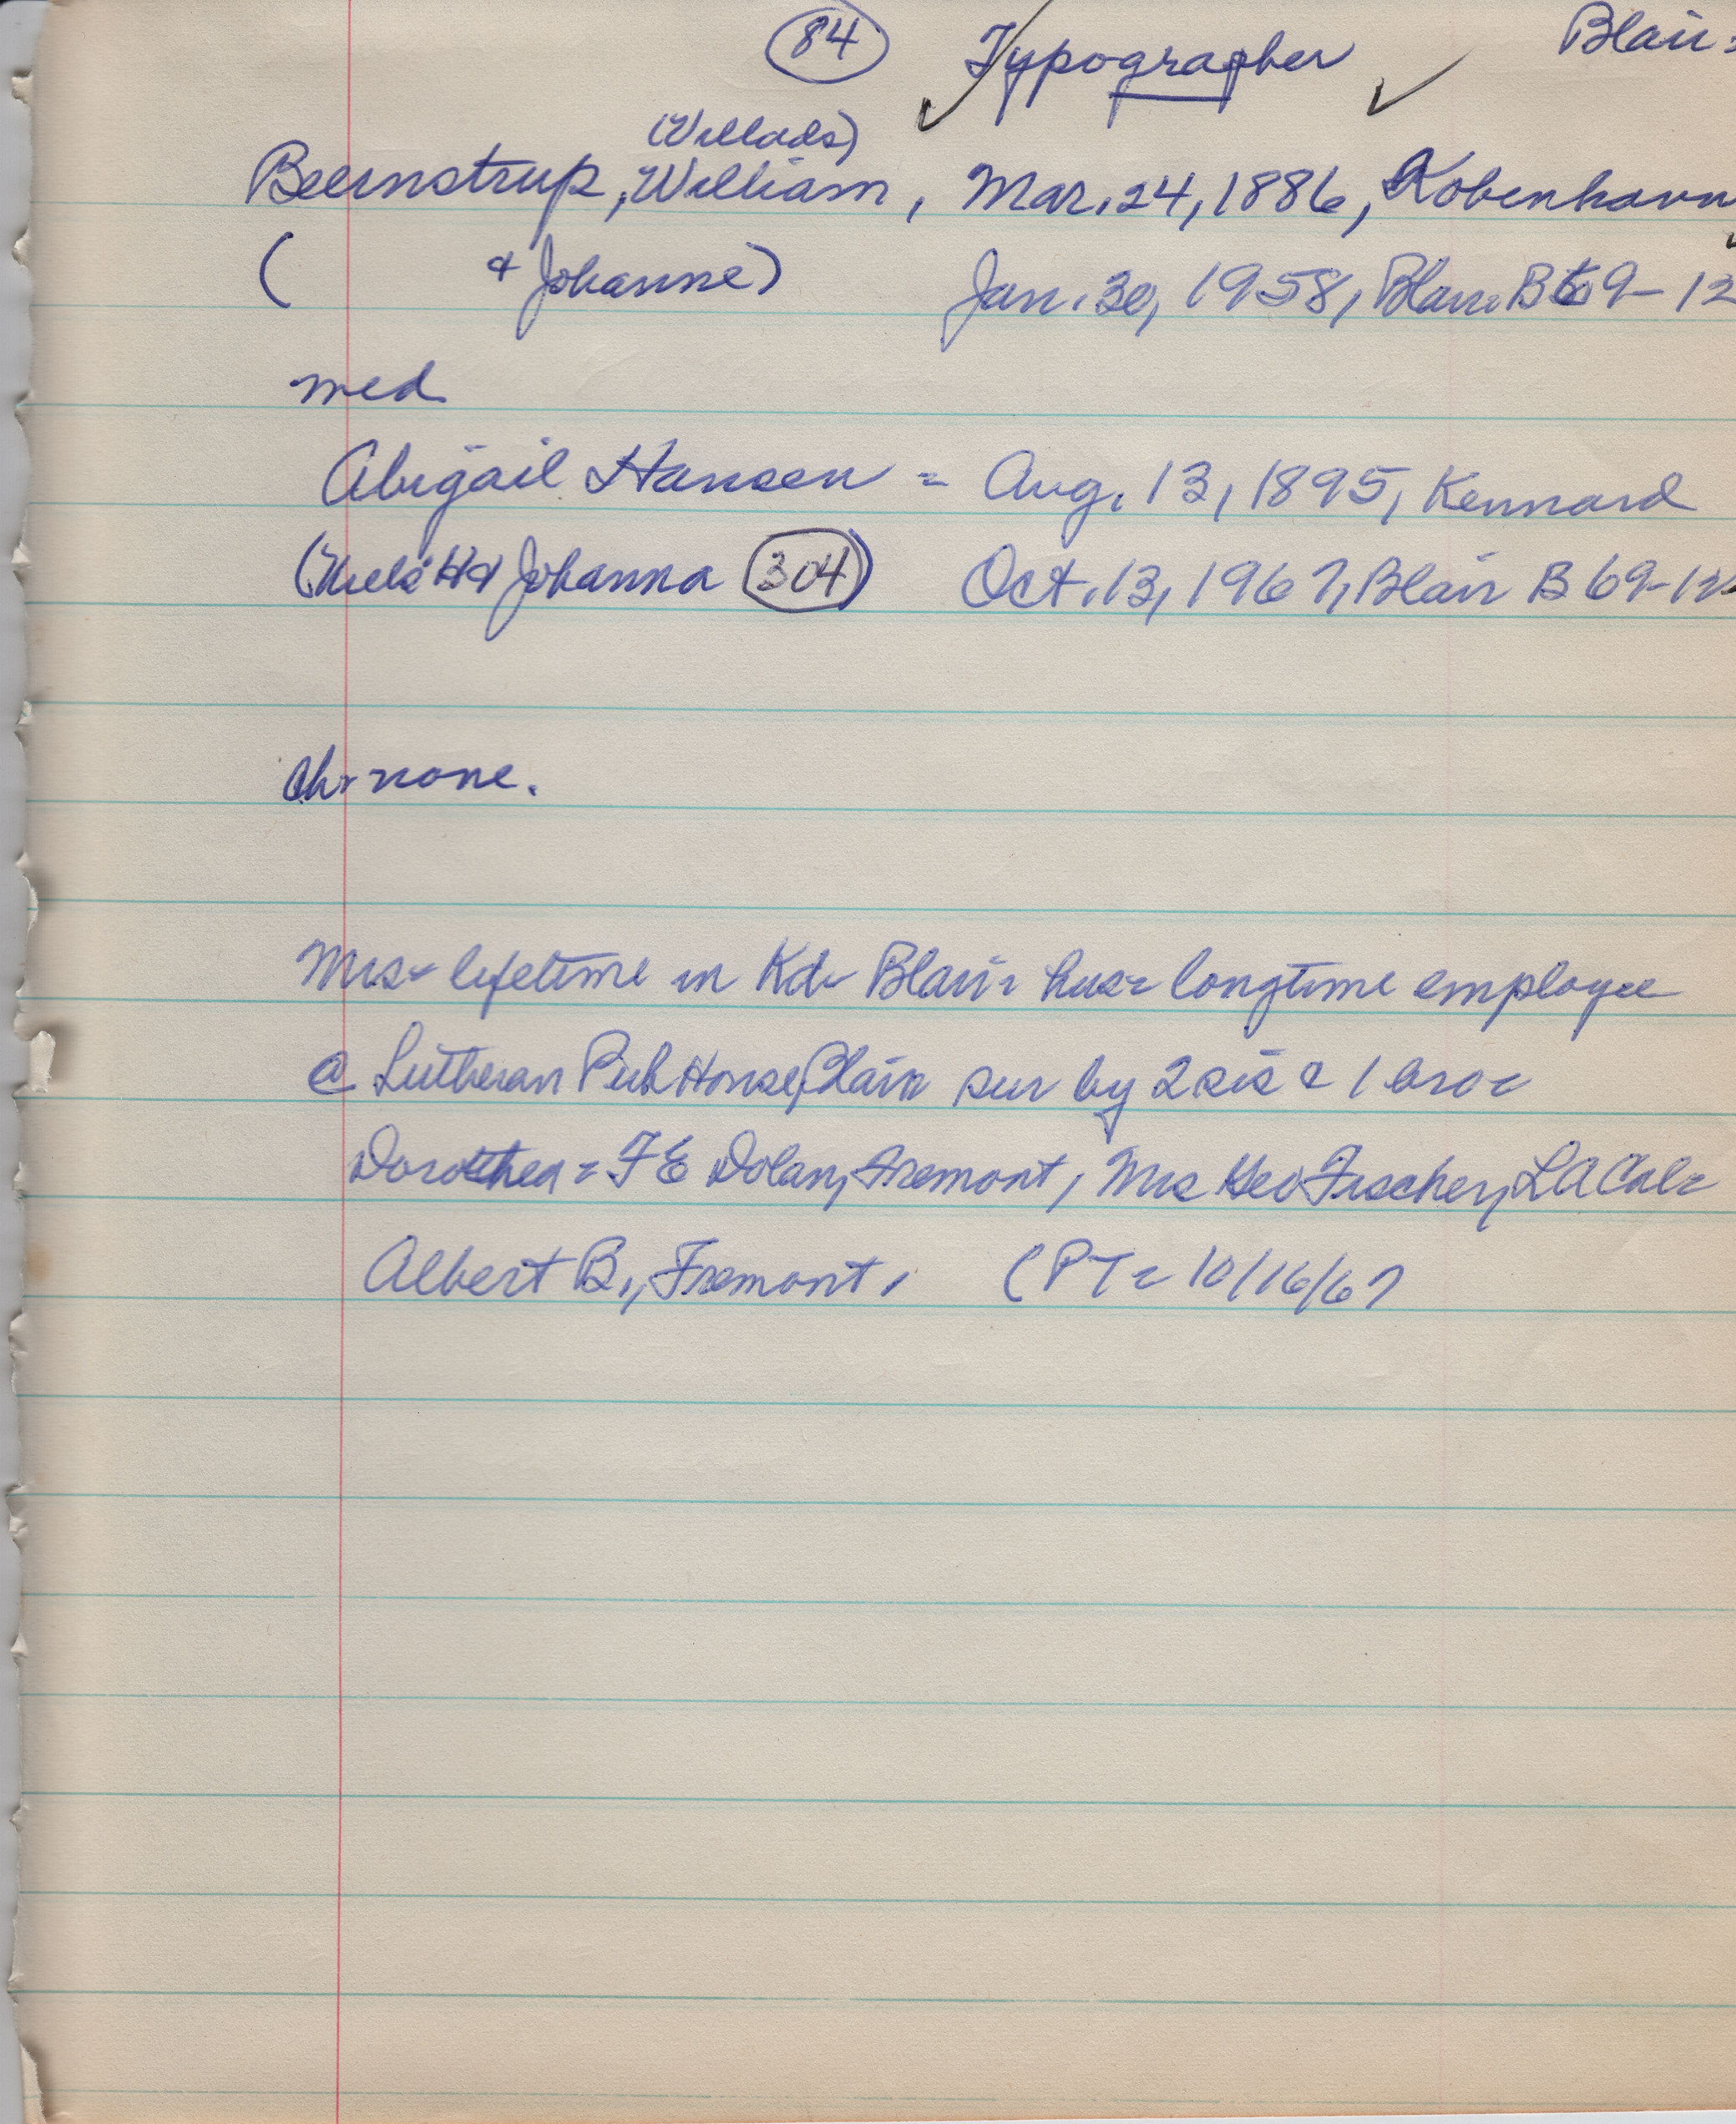 84 Typographer Blair
(Willads)
Beernstrup, William, Mar. 24, 1886, Kobenhavn
( & Johanne) Jan. 30, 1958, Blair B 69-12
med
Abigail Hansen = Aug. 13, 1895, Kennard
(Niels H & Johanna 304) Oct. 13, 1967, Blair B 69-12
Ch= none.
Mrs= lifetime in Kd= Blair= hus= longtime employee
@ Lutheran Pub House, Blair sur by 2 sis & 1 bro=
Dorothea = F E Dolan, Fremont, Mrs Geo Fischer, LA Cal=
Albert B., Fremont. (PT= 10/16/67